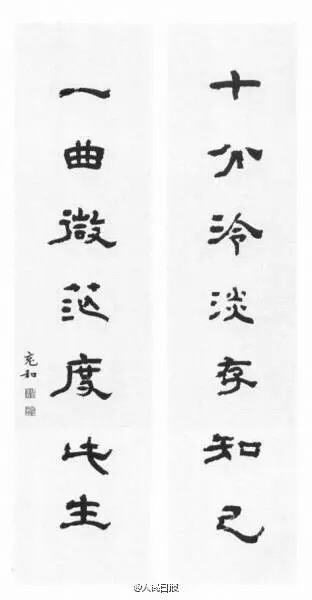 十分冷淡存知己
一曲微茫度此生
充和
@人民日报